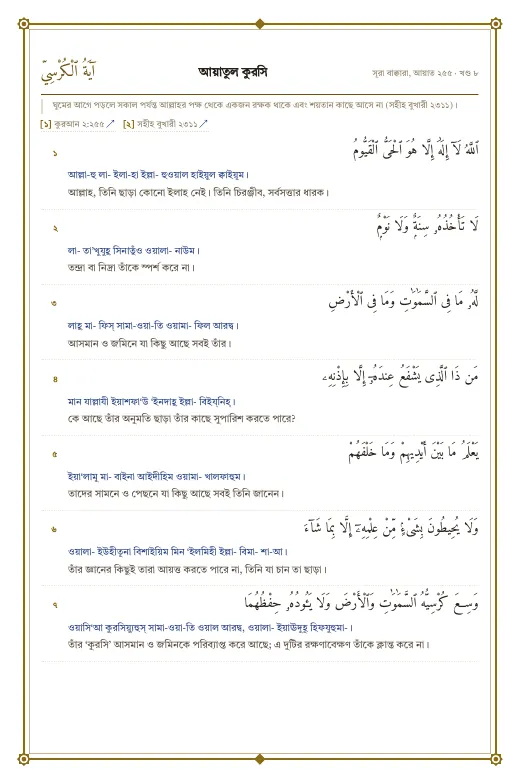 آيَةُ الْكُرْسِيِّ
আয়াতুল কুরসি
সূরা বাক্বারা, আয়াত ২৫৫ · খণ্ড ৮
ঘুমের আগে পড়লে সকাল পর্যন্ত আল্লাহর পক্ষ থেকে একজন রক্ষক থাকে এবং শয়তান কাছে আসে না (সহীহ বুখারী ২৩১১)।
[১] কুরআন ২:২৫৫ ↗ [২] সহীহ বুখারী ২৩১১ ↗
১
ٱللَّهُ لَآ إِلَٰهَ إِلَّا هُوَ ٱلْحَىُّ ٱلْقَيُّومُ
আল্লা-হু লা- ইলা-হা ইল্লা- হুওয়াল হাইয়ুল ক্বাইয়ূম।
আল্লাহ, তিনি ছাড়া কোনো ইলাহ নেই। তিনি চিরঞ্জীব, সর্বসত্তার ধারক।
২
لَا تَأْخُذُهُۥ سِنَةٌ وَلَا نَوْمٌ
লা- তা’খুযুহূ সিনাতুঁও ওয়ালা- নাউম।
তন্দ্রা বা নিদ্রা তাঁকে স্পর্শ করে না।
৩
لَّهُۥ مَا فِى ٱلسَّمَٰوَٰتِ وَمَا فِى ٱلْأَرْضِ
লাহূ মা- ফিস্ সামা-ওয়া-তি ওয়ামা- ফিল আরদ্ব।
আসমান ও জমিনে যা কিছু আছে সবই তাঁর।
৪
مَن ذَا ٱلَّذِى يَشْفَعُ عِندَهُۥٓ إِلَّا بِإِذْنِهِۦ
মান যাল্লাযী ইয়াশফা‘উ ‘ইনদাহূ ইল্লা- বিইয্‌নিহ।
কে আছে তাঁর অনুমতি ছাড়া তাঁর কাছে সুপারিশ করতে পারে?
৫
يَعْلَمُ مَا بَيْنَ أَيْدِيهِمْ وَمَا خَلْفَهُمْ
ইয়া‘লামু মা- বাইনা আইদীহিম ওয়ামা- খালফাহুম।
তাদের সামনে ও পেছনে যা কিছু আছে সবই তিনি জানেন।
৬
وَلَا يُحِيطُونَ بِشَىْءٍ مِّنْ عِلْمِهِۦٓ إِلَّا بِمَا شَآءَ
ওয়ালা- ইউহীতূনা বিশাইয়িম মিন ‘ইলমিহী ইল্লা- বিমা- শা-আ।
তাঁর জ্ঞানের কিছুই তারা আয়ত্ত করতে পারে না, তিনি যা চান তা ছাড়া।
৭
وَسِعَ كُرْسِيُّهُ ٱلسَّمَٰوَٰتِ وَٱلْأَرْضَ وَلَا يَـُٔودُهُۥ حِفْظُهُمَا
ওয়াসি‘আ কুরসিয়্যুহুস্ সামা-ওয়া-তি ওয়াল আরদ্ব, ওয়ালা- ইয়াঊদুহূ হিফযুহুমা-।
তাঁর ‘কুরসি’ আসমান ও জমিনকে পরিব্যাপ্ত করে আছে; এ দুটির রক্ষণাবেক্ষণ তাঁকে ক্লান্ত করে না।